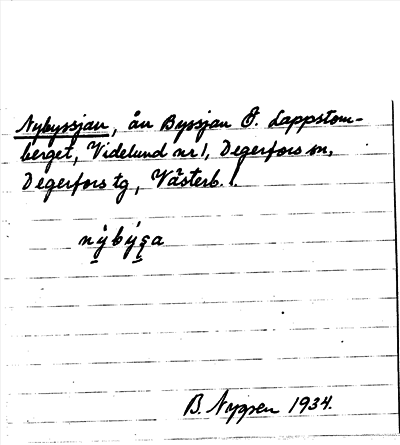 Nybyssjan, ån Byssjan Ö. Lappstom-
berget, Videlund nr 1, Degerfors sn,
Degerfors tg, Västerb. l.
nỳbýʂa
B. Nygren 1934.